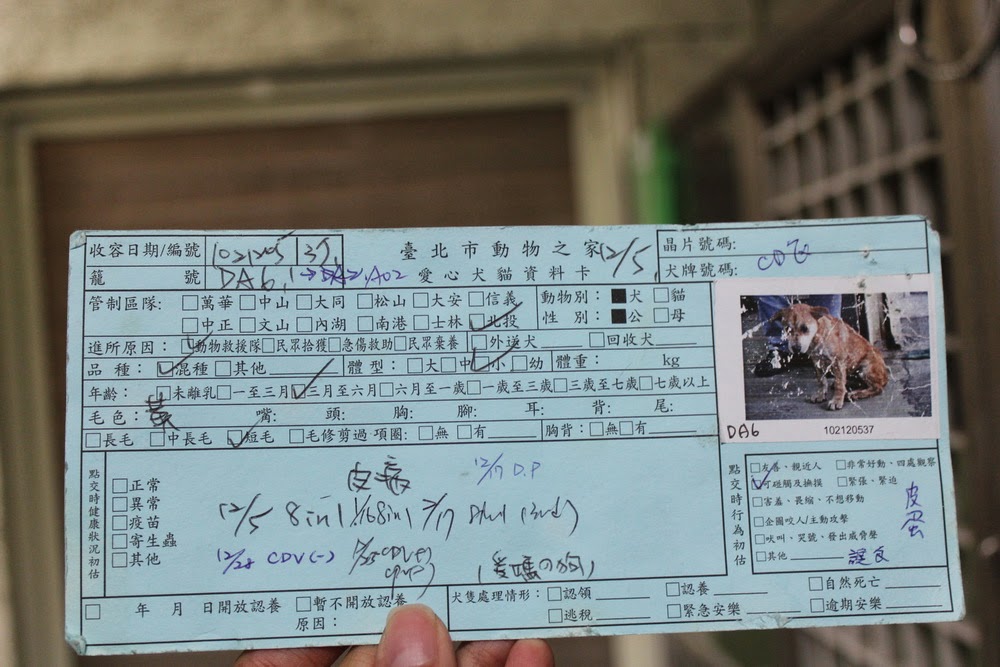 收容日期/編號 1021205 37 臺北市動物之家 12/5 晶片號碼:
籠 號 DA6, → DA2, A02 愛心犬貓資料卡 犬牌號碼:
管制區隊: □萬華□中山□大同 □松山□大安□信義 動物別: ■犬 □貓
□中正□文山□內湖 □南港□士林☑北投 性 別: ■公 □母
進所原因: ☑動物救援隊□民眾拾獲□急傷救助□民眾棄養 □外逆犬 □回收犬
品 種: ☑混種□其他 體 型: □大□中☑小□幼 體重: kg
年齡: □未離乳□一至三月☑三月至六月□六月至一歲□一歲至三歲□三歲至七歲□七歲以上
毛色: 黃 嘴: 頭: 胸: 腳: 耳: 背: 尾:
□長毛 □中長毛 ☑短毛 □毛修剪過 項圈: □無 □有 胸背: □無□有
DA6 102120537
點交時健康狀況初估
□正常
□異常
□疫苗
□寄生蟲
□其他
皮病 12/17 D.P
12/5 8 in 1 1/16 8 in 1 2/17
12/23 CDV(-) CDV(-)
CPV(-)
點交時行為初估
□友善、親近人 □非常好動、四處觀察
☑可碰觸及撫摸 □緊張、緊迫
□害羞、畏縮、不想移動
□企圖咬人/主動攻擊
□吠叫、哭號、發出威脅聲
□其他
皮蛋
□ 年 月 日開放認養 □暫不開放認養
原因:
犬隻處理情形: □認領 □認養 □自然死亡
□逃稅 □緊急安樂 □逾期安樂